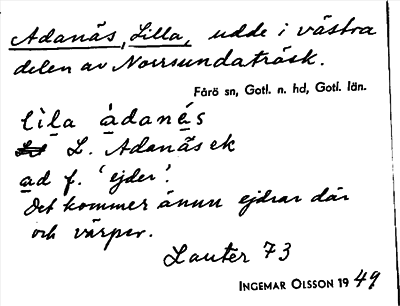 Adanäs, Lilla, udde i västra
delen av Norrsundaträsk.
Fårö sn, Gotl. n. hd, Gotl. län.
lìla ádanés
L. Adanäsek
ad f. 'ejder'.
Det kommer ännu ejdrar där
och värper.
Lauter 73
INGEMAR OLSSON 1949